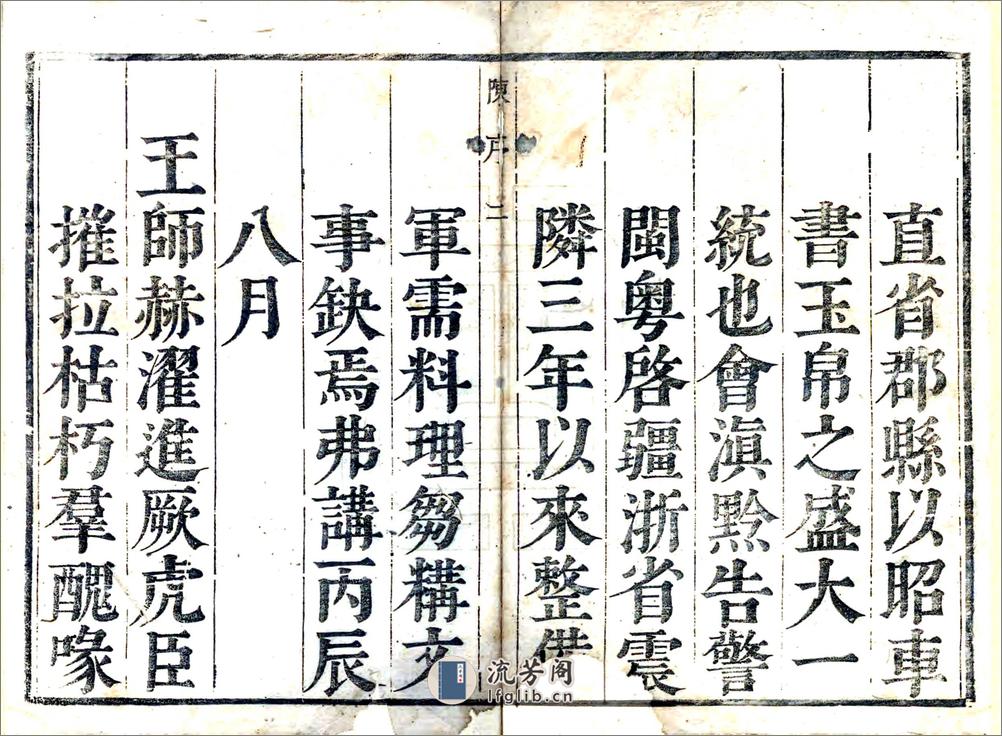 直省郡縣以昭車
書玉帛之盛大一
統也會滇黔告警
閩粵啓疆浙省震
隣三年以來整僃
陳序 二
軍需料理芻構文
事缺焉弗講丙辰
八月
王師赫濯進厥虎臣
摧拉枯朽羣醜喙
流芳阁
lfglib.cn